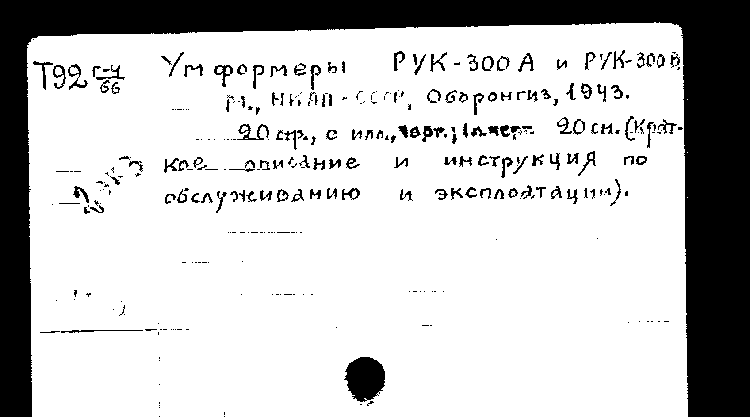 Т92 г-4/66 Умформеры РУК-300А и РУК-300В
М., НКАП-СССР, Оборонгиз, 1943.
20 стр., с илл., черт.; 1 л. черт. 20 см. (Крат-
кое описание и инструкция по
обслуживанию и эксплоатации).
2 экз